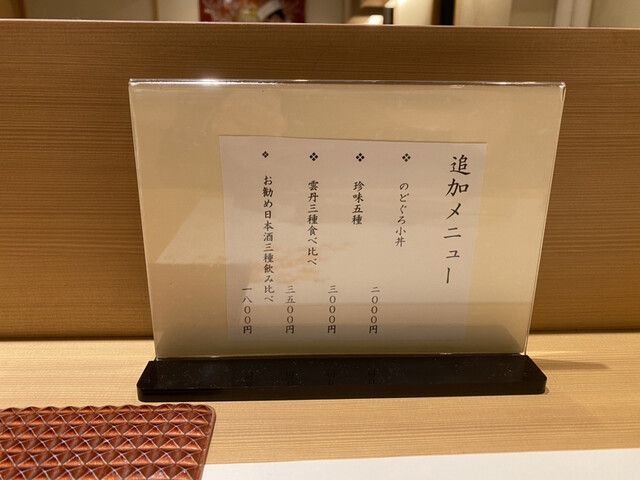 追加メニュー
のどぐろ小丼
二〇〇〇円
珍味五種
三〇〇〇円
雲丹三種食べ比べ
三五〇〇円
お勧め日本酒三種飲み比べ
一八〇〇円